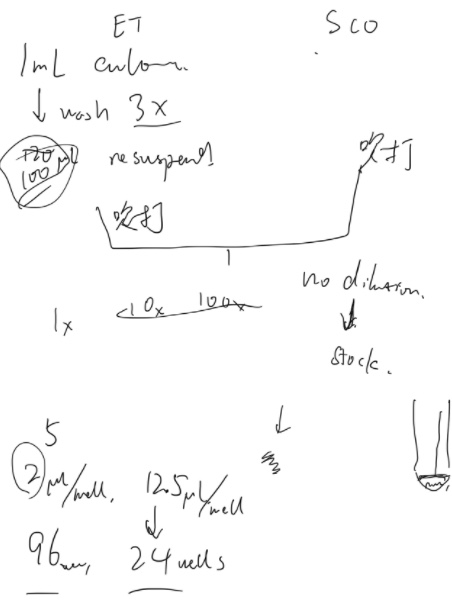 ET SCO
1mL culture.
↓ wash 3x
120
100 μL resuspend!
吹打
吹打
1
no dilution.
↓
stock.
1x 10x 100x
↓
5
2 μl/well, 12.5 μl/well
↓
96 24 wells